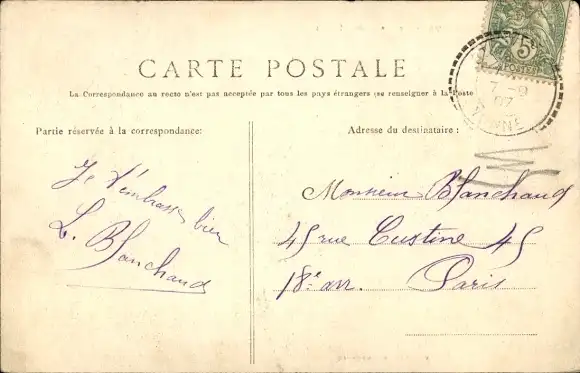 CARTE POSTALE
La Correspondance au recto n'est pas acceptée par tous les pays étrangers (se renseigner à la Poste
Partie réservée à la correspondance:
Je t'embrasse bien
L. Blanchaud
Adresse du destinataire :
Monsieur Blanchaud
45 rue Custine 45
18e arr. Paris
5c
POSTES
7 -9
07